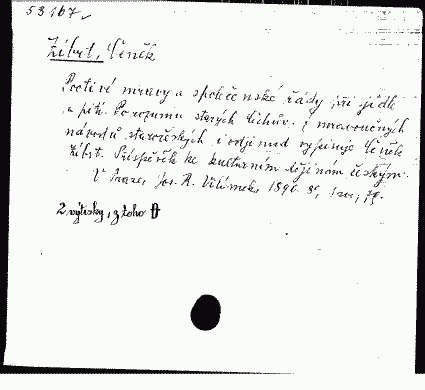 53167
Zíbrt, Čeněk
Poctivé mravy a společenské řády při jídle
a pití. Po rozumu starých Čechův. i mravoučných
návodů staročeských i odjinud vypisuje Čeněk
Zíbrt. Příspěvek ke kulturním dějinám českým.
V Praze, Jos. R. Vilímek, 1890. 8°,
2 výtisky, z toho